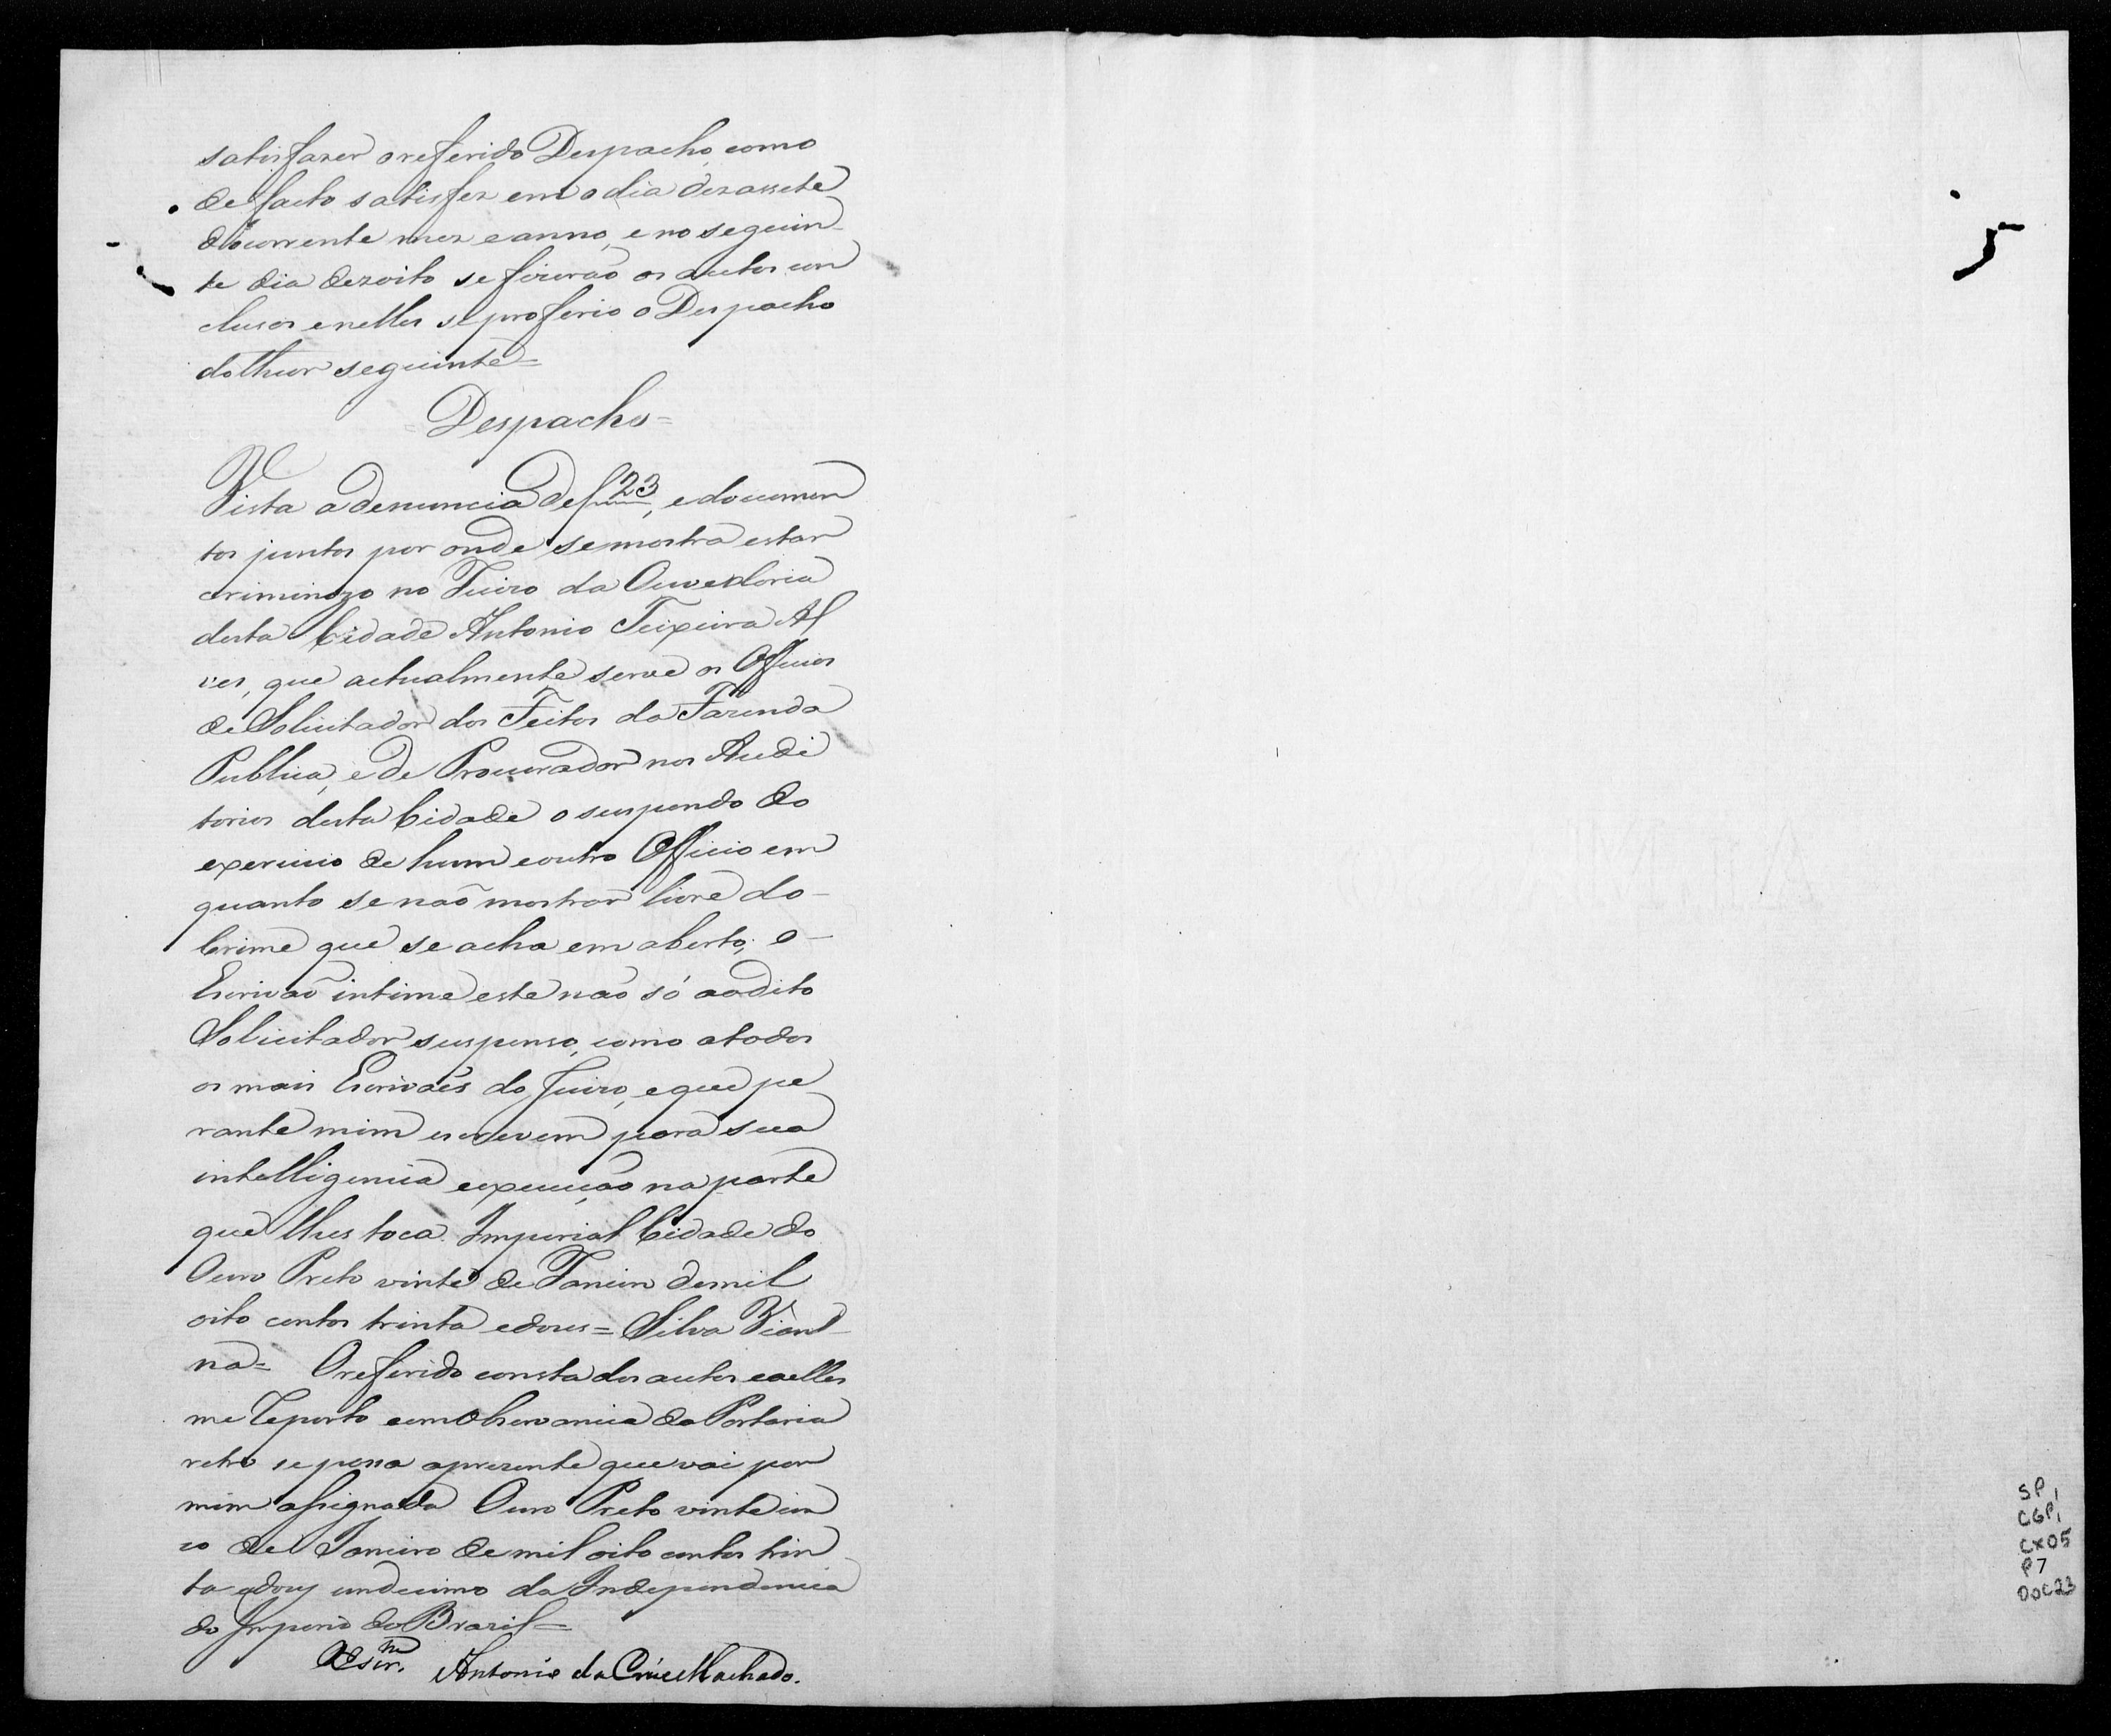 satisfazer o referido Despacho, como
de facto satisfez em o dia dezassete
do corrente mez e anno, e no seguin
te dia dezoito se fizerão os autos con
clusos e nelles se proferio o Despacho
do theor seguinte =
= Despacho =
Vista a denuncia de f 23, e documen
tos juntos por onde se mostra estar
criminozo no Juizo da Ouvedoria
desta Cidade Antonio Teixeira Al
ves, que actualmente serve os Officios
de Solicitador dos Feitos da Fazenda
Publica, e de Procurador nos Audi
torios desta Cidade o suspendo do
exercicio de hum e outro Officio em
quanto se não mostrar livre do
Crime que se acha em aberto; o
Escrivão intime este não só ao dito
Solicitador suspenso, como a todos
os mais Escrivães do Juizo, e que pe
rante mim escrevem para sua
intelligencia e execução na parte
que lhes toca. Imperial Cidade do
Ouro Preto vinte de Janeiro de mil
oito centos trinta e dous = Silva Vian
na = O referido consta dos autos e a elles
me reporto e em observancia da Portaria
retro se passa a prezente que vai por
mim assignada Ouro Preto vinte cin
co de Janeiro de mil oito centos trin
ta e dous undecimo da Independencia
do Imperio do Brazil =
O Escr.m Antonio da Cruz Machado.
5
SP1
CGP1
CX05
P7
DOC23